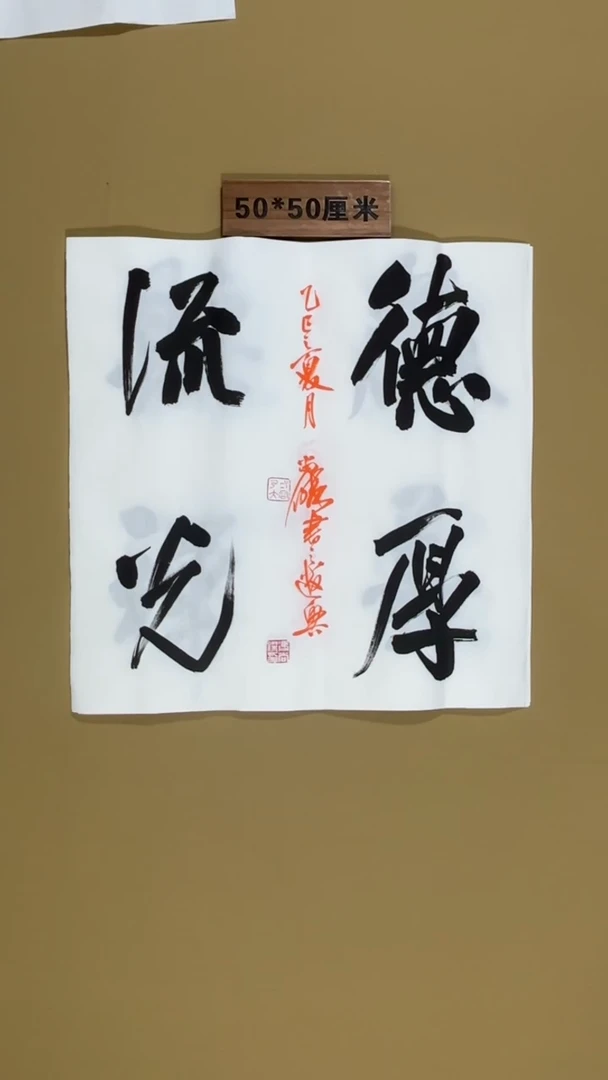 50*50厘米
德厚
乙巳之夏月
流光